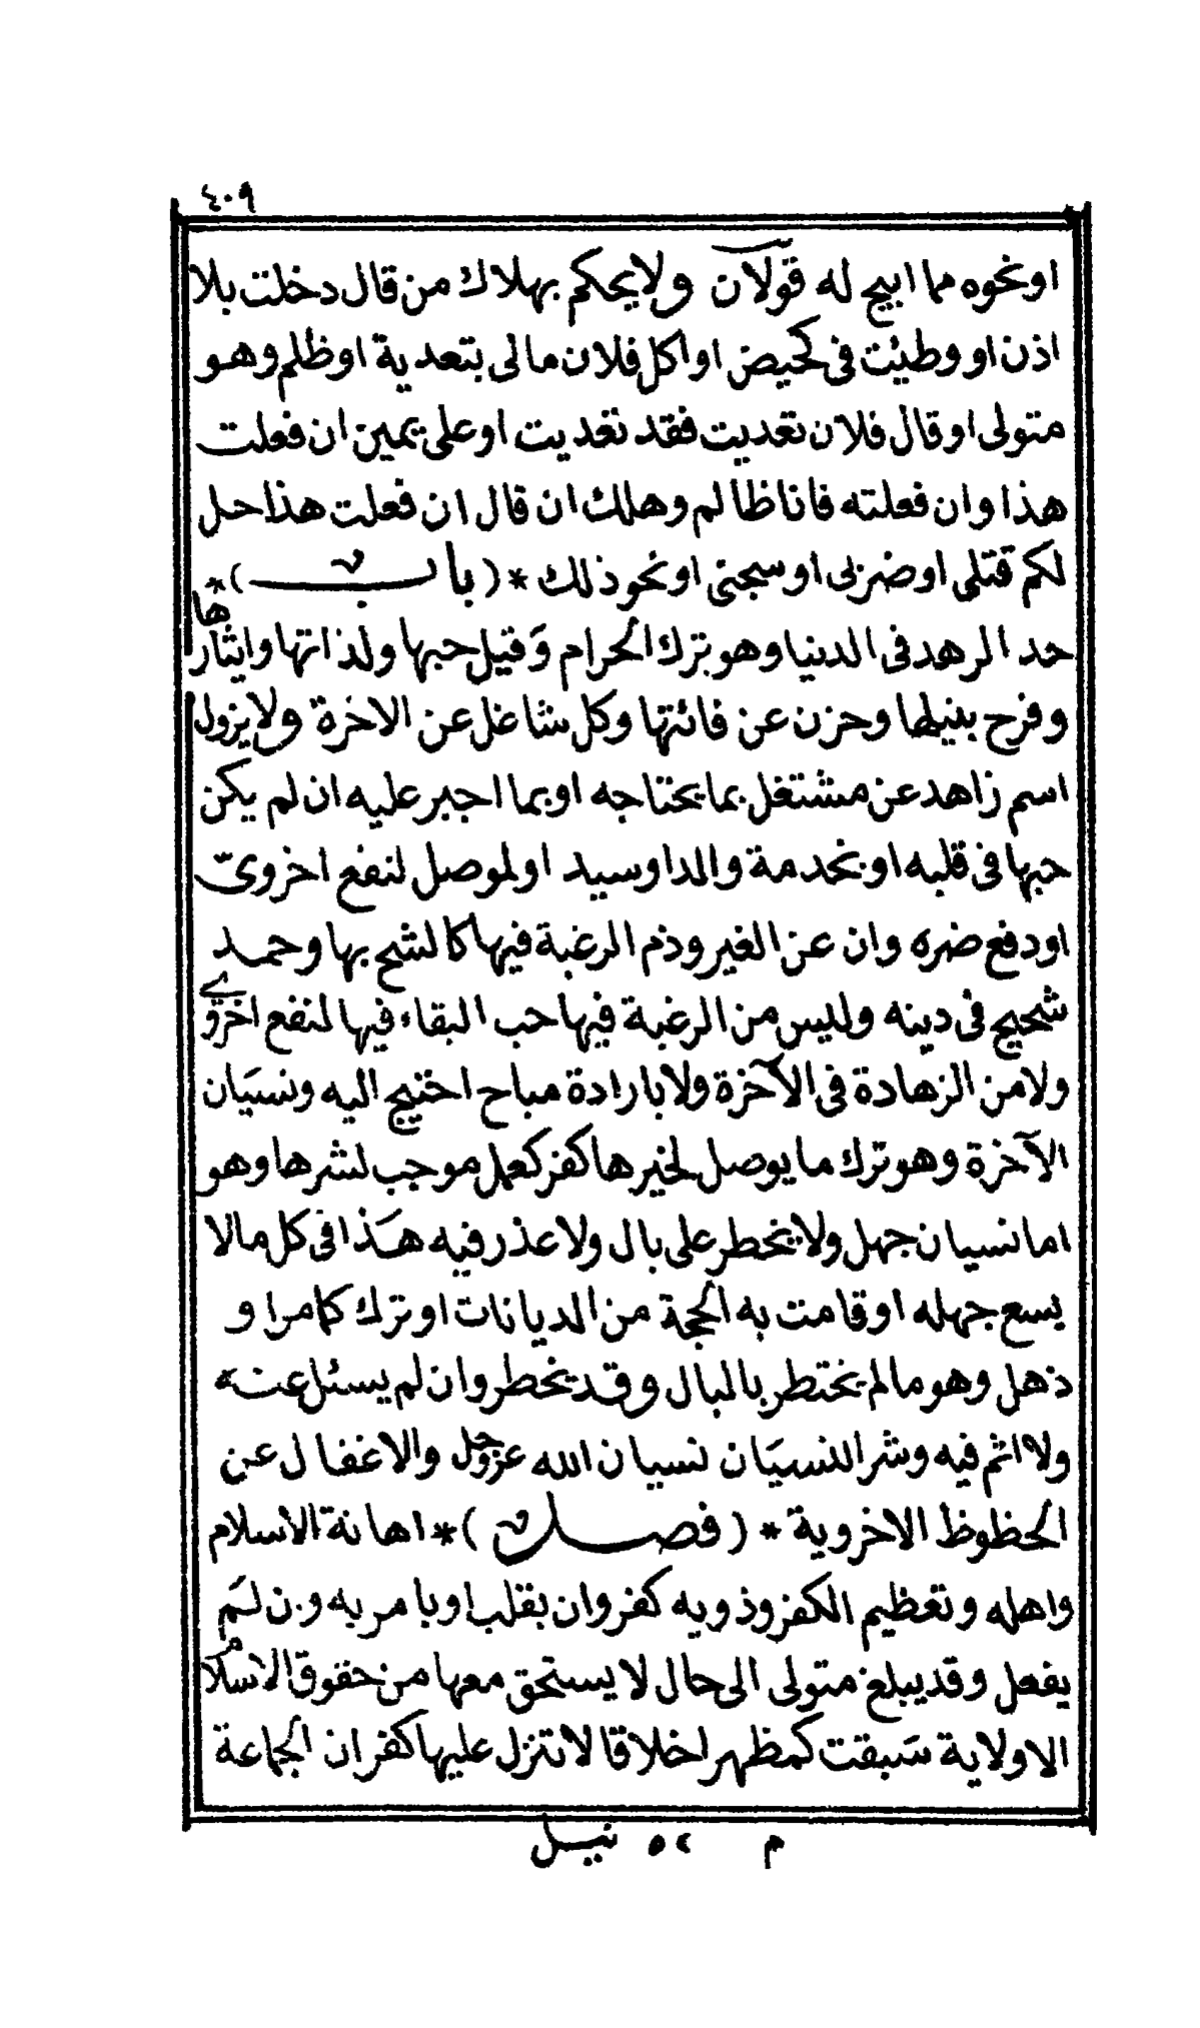 ٤٠٩
او نحوه مما ابيح له قولان ولا يحكم بهلاك من قال دخلت بلا
اذن او وطيئت فى كحيض او اكل فلان مالى بتعدية او ظلم وهو
متولى او قال فلان تعديت فقد تعديت او على يمين ان فعلت
هذا وان فعلته فانا ظالم وهلك ان قال ان فعلت هذا حل
لكم قتلى او ضربى او سجنى او نحو ذلك *( باب )*
حد الزهد فى الدنيا وهو ترك الحرام وَقيل حبها ولذاتها وايثارها
وفرح بنيلها وحزن عن فائتها وكل شاغل عن الاخرة ولا يزول
اسم زاهد عن مشتغل بما يحتاجه او بما اجبر عليه ان لم يكن
حبها فى قلبه او بخدمة والد او سيد او لموصل لنفع اخروىّ
او دفع ضره وان عن الغير وذم الرغبة فيها كالشح بها وحمد
شحيح فى دينه وليس من الرغبة فيها حب البقاء فيها لنفع اخروي
ولا من الزهادة فى الآخرة ولا بارادة مباح احتيج اليه ونسيَان
الآخرة وهو ترك ما يوصل لخيرها كفر كعمل موجب لشرها وهو
اما نسيان جهل ولا يخطر على بال ولا عذر فيه هَذا فى كل مالا
يسع جهله او قامت به الحجة من الديانات او ترك كما مر او
ذهل وهو ما لم يختطر بالبال وقد يخطر وان لم يسئل عنه
ولا اثم فيه وشر النسيَان نسيان الله عز وجل والاغفال عن
الحظوظ الاخروية *( فصل )* اهانة الاسلام
واهله وتعظيم الكفر وذويه كفر وان بقلب او بامر به ون لَم
يفعل وقد يبلغ متولى الى حال لا يستحق معها من حقوق الاسلام
الا ولاية سَبقت كمظهر اخلاقا لا تنزل عليها كفران الجماعة
م ٥٢ نيل